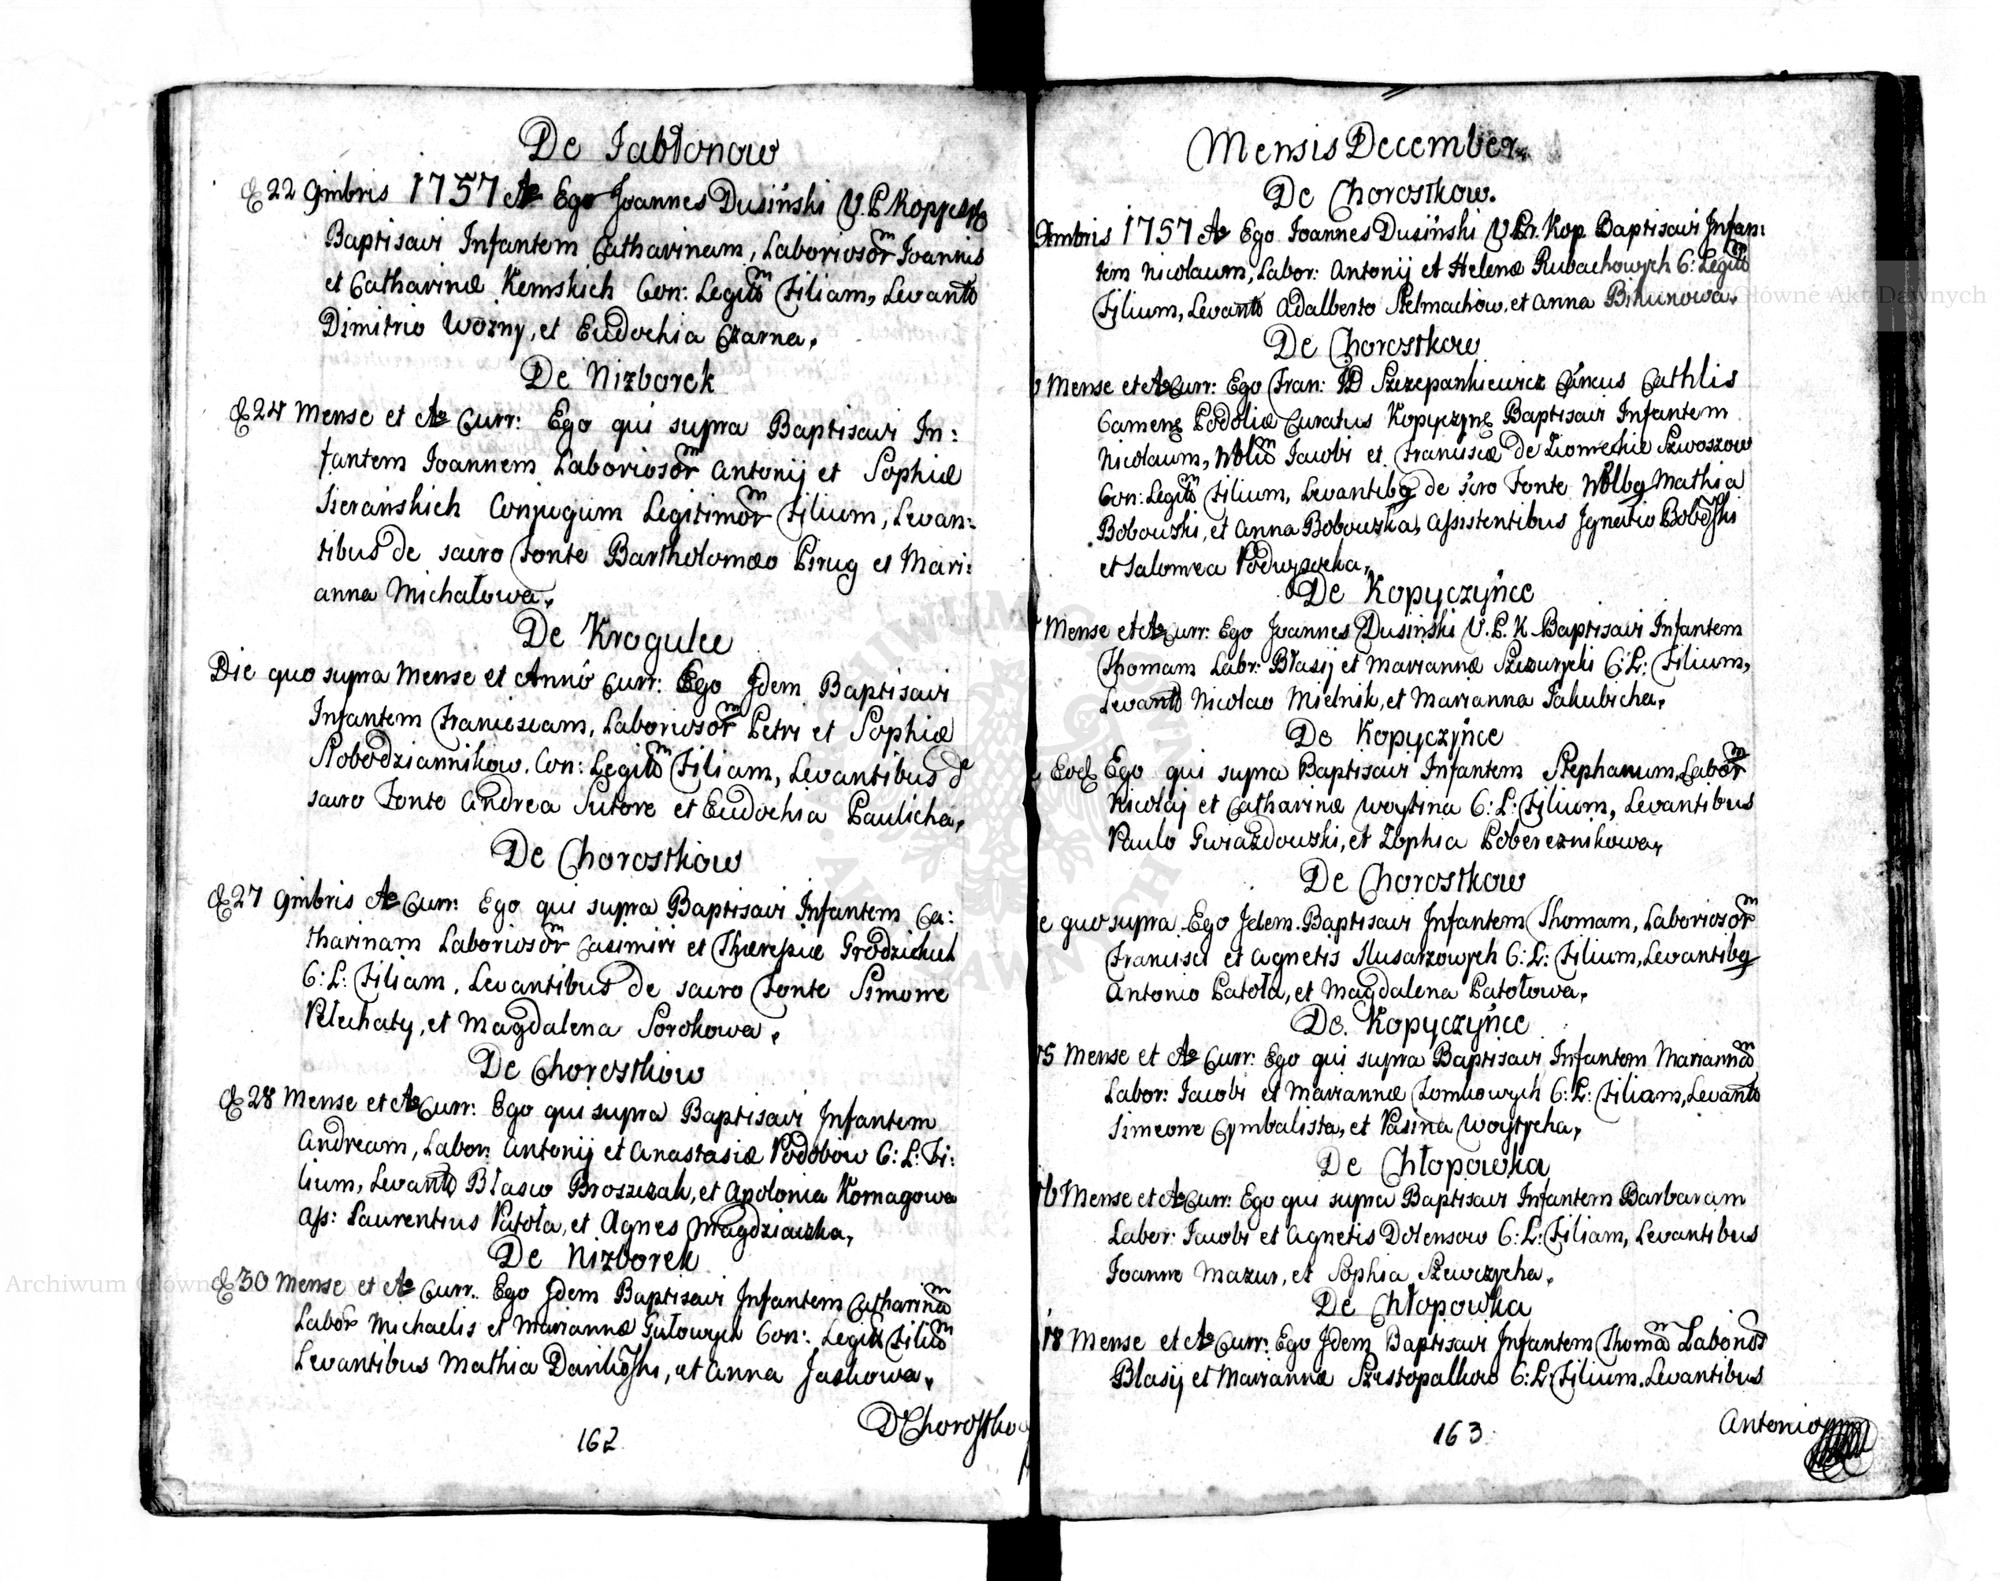 De Jabłonow
22 9mbris 1757 Ao Ego Joannes Dusiński V. P. Kopycz
Baptisavi Infantem Catharinam, Laboriosorm Joannis
et Catharinæ Kemskich Con: Legitm Filiam, Levantb
Dimitrio Wozny, et Eudochia Czarna.
De Nizborek
24 Mense et Ao Curr: Ego qui supra Baptisavi In:
fantem Joannem Laboriosorm Antonij et Sophiæ
Sierańskich Conjugum Legitimorm Filium, Levan:
tibus de sacro Fonte Bartholomæo Pirug et Mari:
anna Michałowa.
De Krogulce
Die quo supra Mense et Anno Curr: Ego Jdem Baptisavi
Infantem Franciscam, Laboriosorm Petri et Sophiæ
Slobodziannikow. Con: Legitm Filiam, Levantibus de
sacro Fonte Andrea Sutore et Eudochia Paulicha.
De Chorostkow
27 9mbris Ao Curr: Ego qui supra Baptisavi Infantem Ca:
tharinam Laboriosorm Casimiri et Theresiæ Grodzickich
C: L: Filiam, Levantibus de sacro Fonte Simone
Plechaty, et Magdalena Sorokowa.
De Chorostkow
28 Mense et Ao Curr: Ego qui supra Baptisavi Infantem
Andream, Labor: Antonij et Anastasiæ Podobow C: L: Fi:
lium, Levantb Błasio Broszczak, et Apolonia Komagowa
Ass: Laurentius Patoła, et Agnes Magdziaszka.
De Nizborek
30 Mense et Ao Curr. Ego Jdem Baptisavi Infantem Catharinam
Labor Michaelis et Mariannæ Gutowych Con: Legit Filiam
Levantibus Mathia Daniloski, et Anna Jaskowa.
D Chorostko
162
Mensis December.
De Chorostkow.
Xmbris 1757 Ao Ego Joannes Dusiński V. Pr. Kop Baptisavi Infan:
tem Nicolaum, Labor: Antonij et Helenæ Rubachowych C: Legitm
Filium, Levantb Adalberto Stelmachow, et Anna Bihunowa.
De Chorostkow
Mense et Ao Curr: Ego Fran: Szczepankiewicz Cathlis
Camene Podoliæ Curatus Kopyczyne Baptisavi Infantem
Nicolaum, Jacobi et Franciscæ de Szwoszow
Con: Legitm Filium, Levantibq de scro Fonte Mathia
Bobowski, et Anna Bobowska, Assistentibus Jgnatio Boboski
et Salomea Podwysocka.
De Kopyczyńce
Mense et Ao Curr: Ego Joannes Dusiński V. P. K. Baptisavi Infantem
Thomam Labr: Błasij et Mariannæ Szczurycki C: L: Filium,
Levantb Nicolao Mielnik, et Marianna Jakubicha.
De Kopyczyńce
Eod Ego qui supra Baptisavi Infantem Stephanum, Laborm
Nicolaj et Catharinæ Woytina C: L: Filium, Levantibus
Paulo Gwiazdowski, et Zophia Pobereznikowa.
De Chorostkow
e quo supra Ego Jdem Baptisavi Infantem Thomam, Laboriosorm
Francisci et Agnetis Slusarzowych C: L: Filium, Levantibq
Antonio Patoła, et Magdalena Patołowa.
De Kopyczyńce
15 Mense et Ao Curr: Ego qui supra Baptisavi Infantem Mariannam
Labor: Jacobi et Mariannæ Tomkowych C: L: Filiam, Levantb
Simeone Cymbalista, et Pasina Woytycha.
De Chłopowka
16 Mense et Ao Curr: Ego qui supra Baptisavi Infantem Barbaram
Labor: Jacobi et Agnetis Dolensow C: L: Filiam, Levantibus
Joanne Mazur, et Sophia Szewczycha.
De Chłopowka
18 Mense et Ao Curr: Ego Jdem Baptisavi Infantem Thomam Labor
Blasij et Mariannæ Szestopalkow C: L: Filium. Levantibus
Antonio
163
Archiwum Główne Akt Dawnych